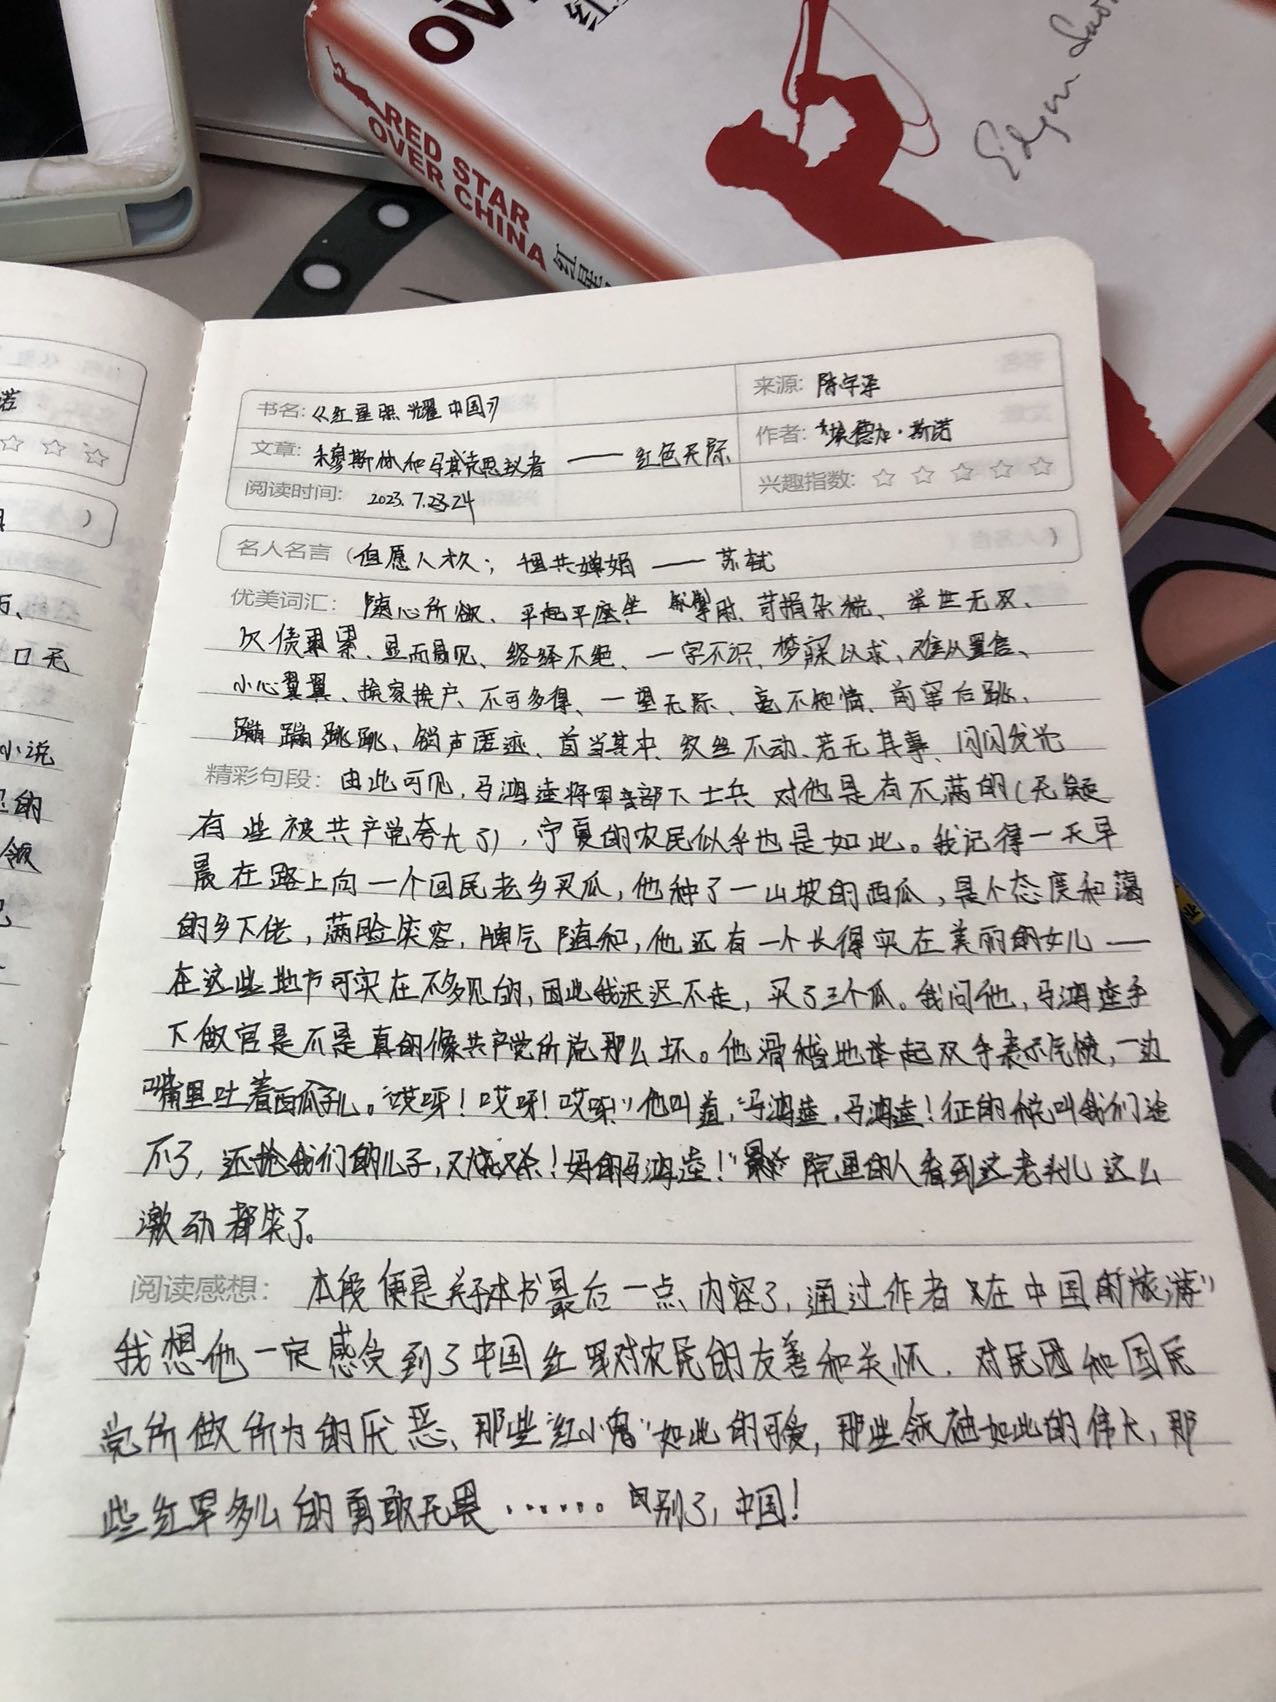 OV
红
Edgar Snow
RED STAR
OVER CHINA
红星
书名: 《红星照耀中国》
来源: 陈宇
文章: 穆斯林和马克思主义者 —— 红色天际
作者: 埃德加·斯诺
阅读时间: 2023.7.23.24
兴趣指数: ☆ ☆ ☆ ☆ ☆
名人名言 (但愿人长久; 千里共婵娟 —— 苏轼 )
优美词汇: 随心所欲、平起平坐、苛捐杂税、举世无双、
欠债累累、显而易见、络绎不绝、一字不识、梦寐以求、难以置信、
小心翼翼、挨家挨户、不可多得、一望无际、毫不知情、前窜后跳、
蹦蹦跳跳、销声匿迹、首当其冲、纹丝不动、若无其事、闪闪发光
精彩句段: 由此可见,马鸿逵将军部下士兵对他是有不满的(无疑
有些被共产党夸大了),宁夏的农民似乎也是如此。我记得一天早
晨在路上向一个回民老乡买瓜,他种了一山坡的西瓜,是个态度和蔼
的乡下佬,满脸笑容,脾气随和,他还有一个长得实在美丽的女儿——
在这些地方可实在不多见的,因此我迟迟不走,买了三个瓜。我问他,马鸿逵手
下做官是不是真的像共产党所说那么坏。他滑稽地举起双手表示气愤,一边
嘴里吐着西瓜子儿。“哎呀!哎呀!哎呀!”他叫道,“马鸿逵,马鸿逵!征的税叫我们活
不了,还抢我们的儿子,又烧又杀!妈的马鸿逵!” 院里的人看到这老头儿这么
激动都笑了。
阅读感想: 本段便是关于本书最后一点内容了,通过作者“在中国的旅游”
我想他一定感受到了中国红军对农民的友善和关怀,对民团和国民
党所做所为的厌恶、那些“红小鬼”如此的可爱,那些领袖如此的伟大,那
些红军多么的勇敢无畏······别了,中国!
诺
☆ ☆ ☆
)
口无
小说
的
领